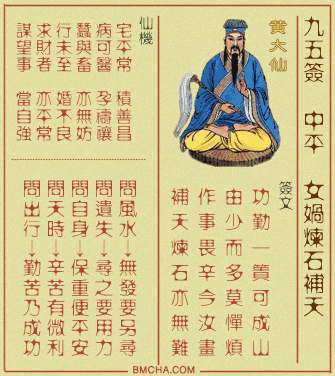 九五簽 中平 女媧煉石補天
黃大仙
簽文
功勤一簣可成山
由少而多莫憚煩
作事畏辛今汝畫
補天煉石亦無難
仙機
宅平常 積善昌
病可醫 孕禱禳
蠶與畜 亦無妨
行未至 婚不良
求財者 亦平常
謀望事 當自強
問風水→無發要另尋
問遺失→尋之要用力
問自身→保重便平安
問天時→辛苦有微利
問出行→勤苦乃成功
BMCHA.COM